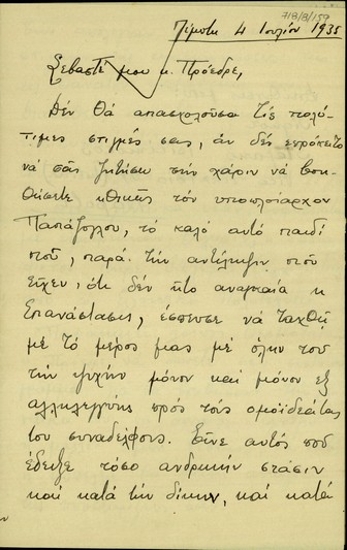 718/8/159
Πέμπτη 4 Ιουλίου 1935
Σεβαστέ μου κ. Πρόεδρε,
Δέν θά απασχολούσα τίς πολύ-
τιμες στιγμές σας, άν δέν επρόκειτο
νά σάς ζητήσω τήν χάριν νά βοη-
θήσετε ηθικώς τόν υποπλοίαρχον
Παπάζογλου, τό καλό αυτό παιδί
πού, παρά τήν αντίληψιν πού
είχεν, ότι δέν ήτο αναγκαία η
Επανάστασις, έσπευσε νά ταχθή
μέ τό μέρος μας μέ όλην του
τήν ψυχήν μόνον καί μόνον εξ
αλληλεγγύης πρός τούς ομοϊδεάτας
του συναδέλφους. Είνε αυτός πού
έδειξε τόσο ανδρικήν στάσιν
καί κατά τήν δίκην, καί κατά